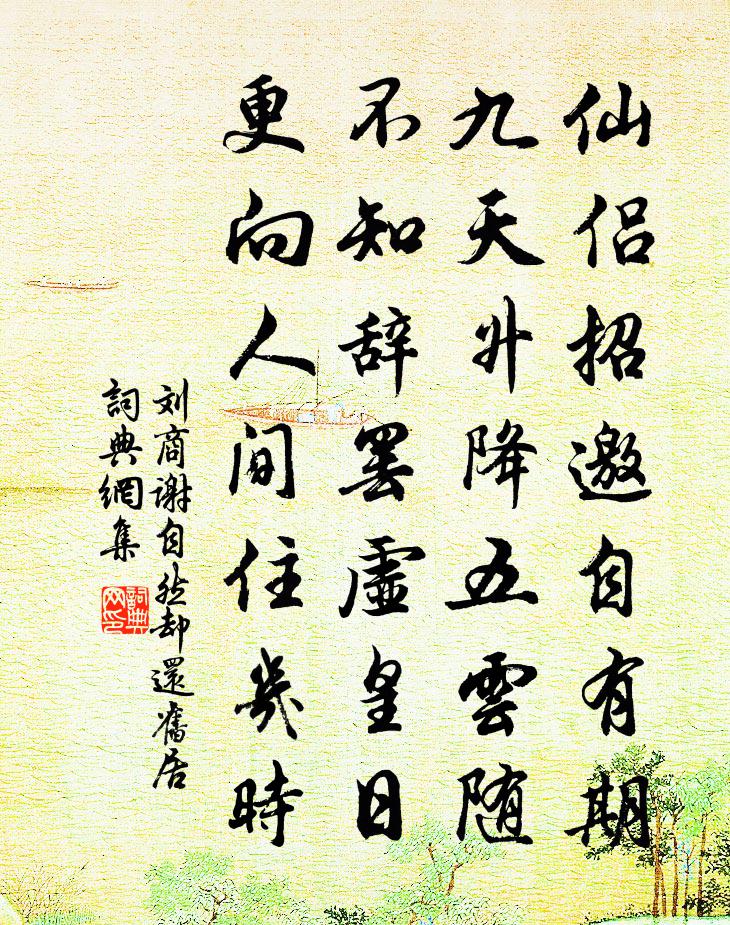 仙侣招邀自有期
九天升降五雲随
不知辞罢虚皇日
更向人間住幾時
刘商謝自然却還舊居
詞典網集
詞典
网印